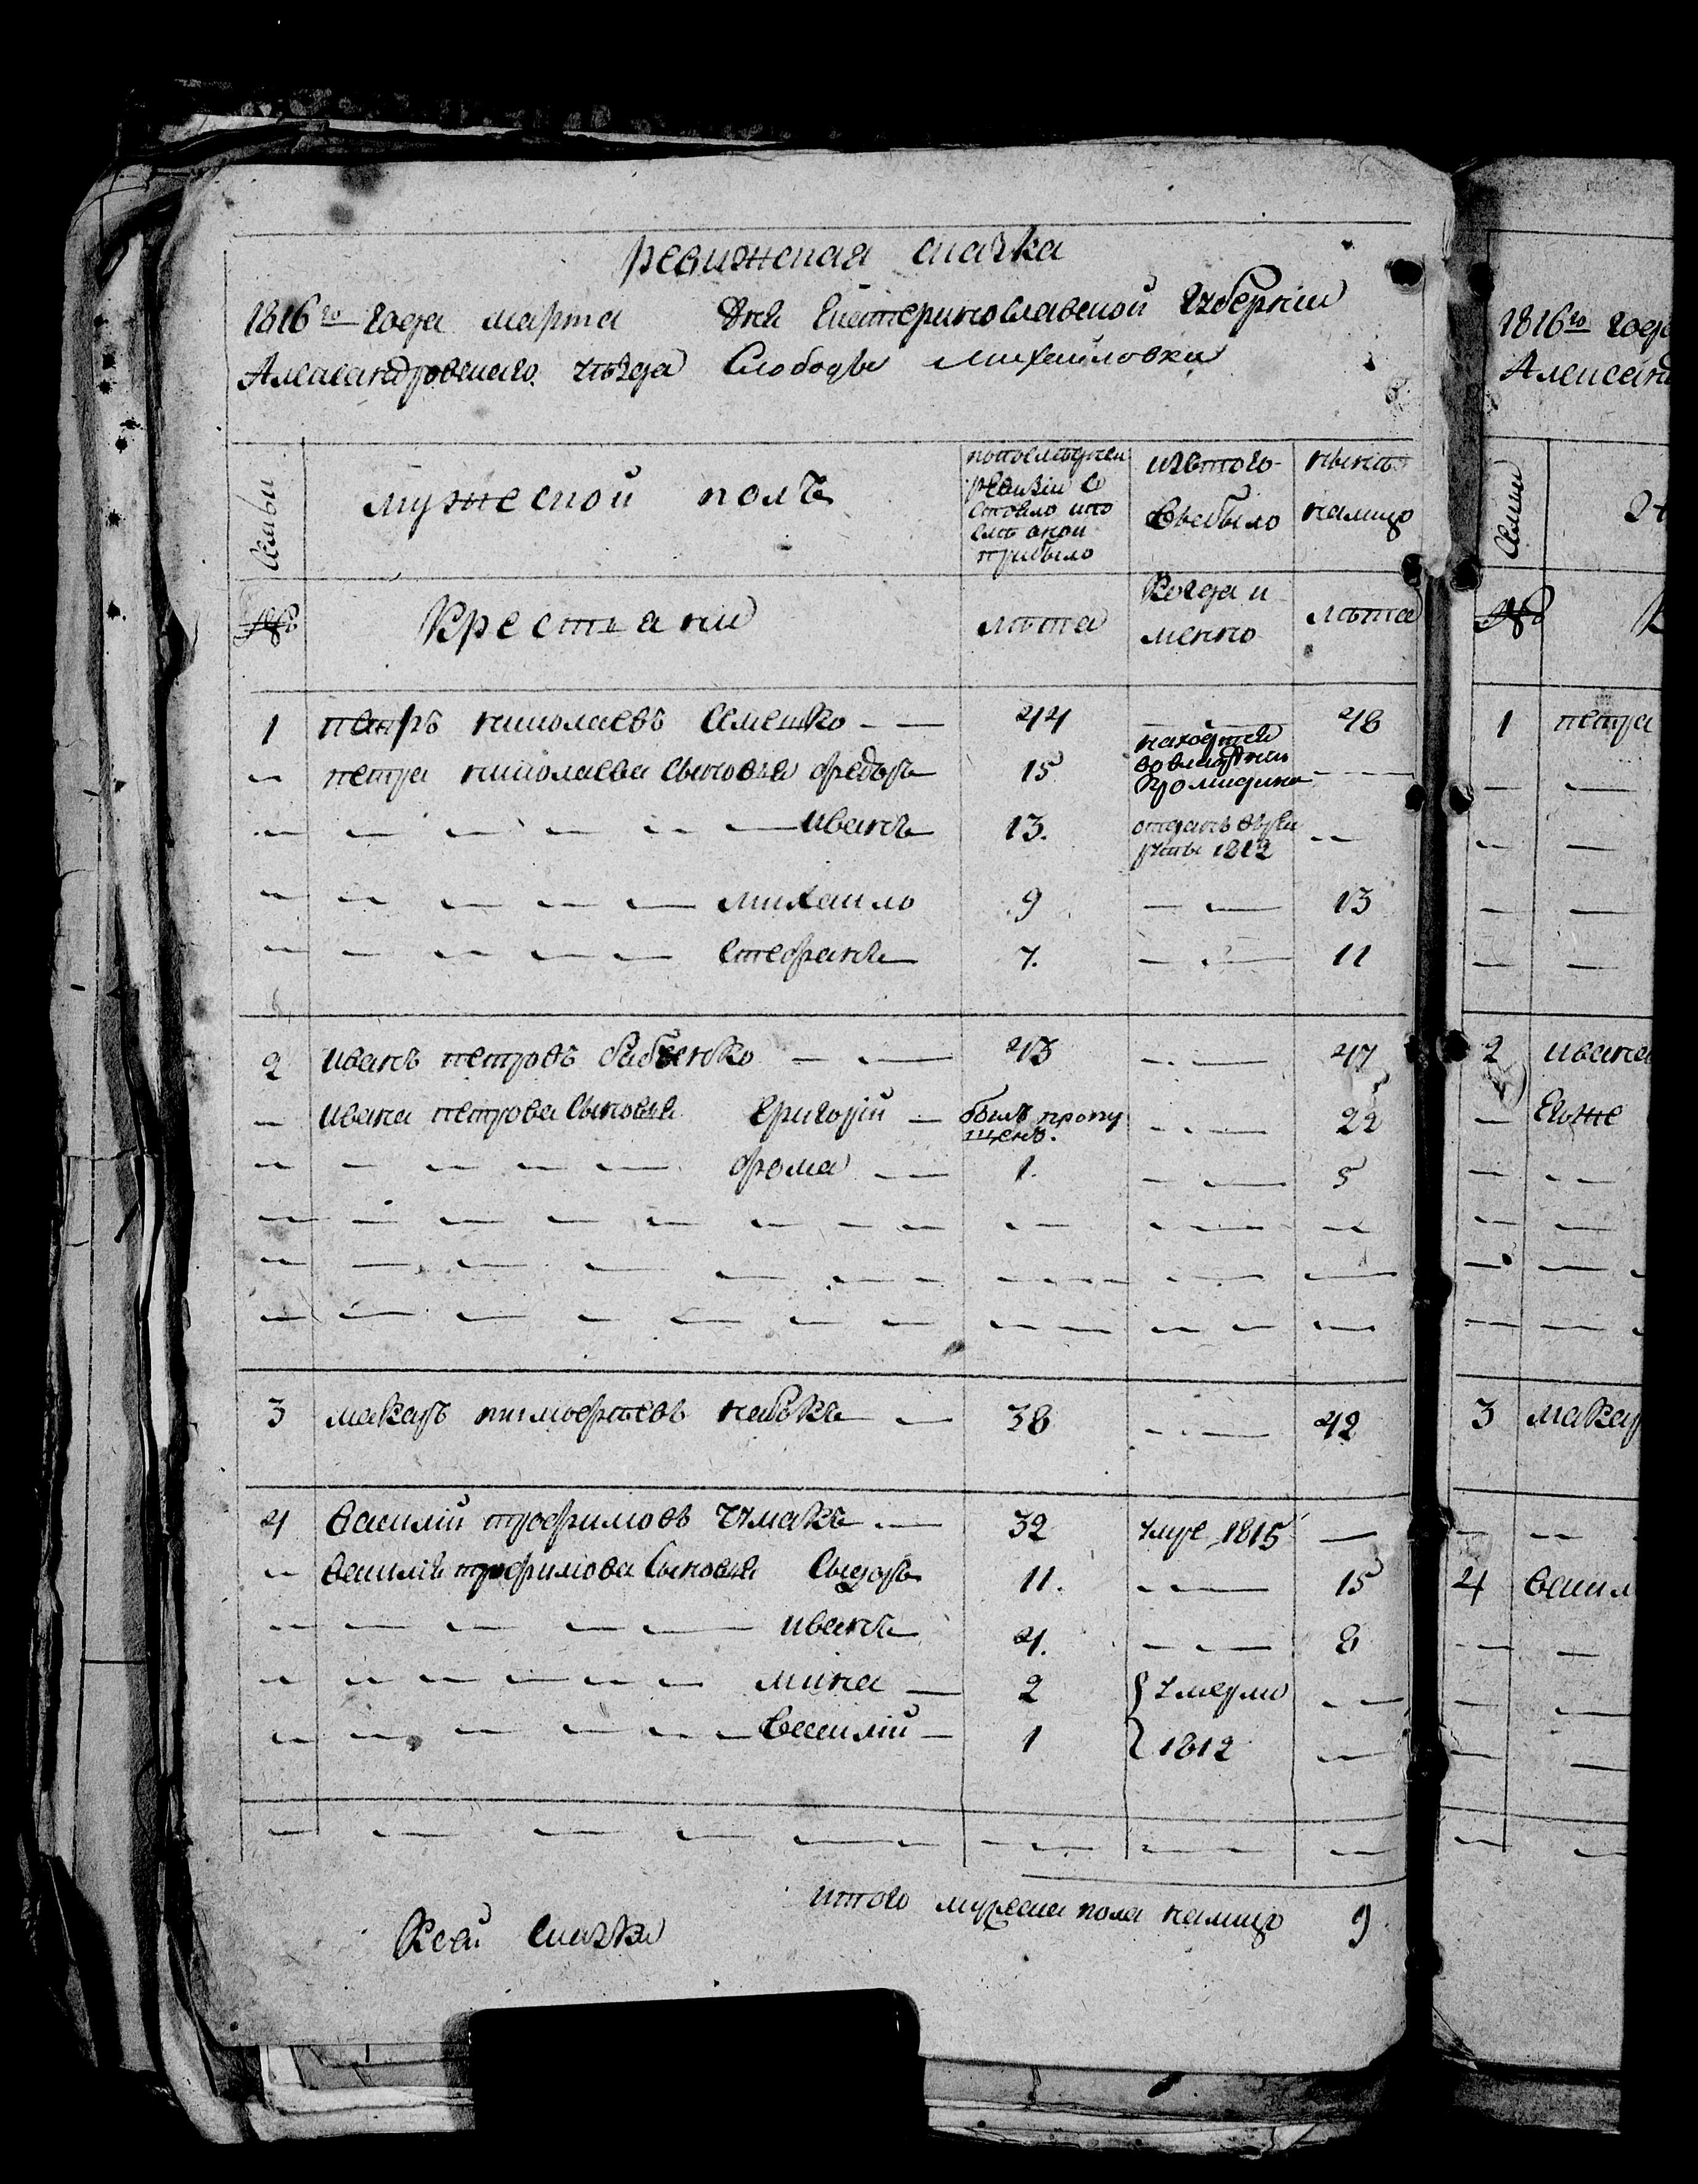 ревижская сказка
1816го года марта дня Екатеринославской Губерніи
Александровскаго уѣзда Слободы Михайловки
Семьи
мужеской полъ
попоследней ревизіи состояло ито елѣ оной прибыло
изътого выбыло
нынѣ налицо
№
Крестьяни
лѣта
Когда именно
лѣта
1 петръ николаевъ Семенко 44 48
петра николаева сыновья федоръ 15 находится вовладѣніи
иванъ 13. отданъ врекруты 1812
михаило 9 13
стефанъ 7. 11
2 иванъ петровъ бабенко 43 47
ивана петрова сыновья григорій былъ пропущенъ. 22
фома 1. 5
3 макаръ тимофеевъ 38 42
4 василій трофимовъ чумакъ 32 умре 1815
василія трофимова сыновья сыдоръ 11. 15
иванъ 4. 8
мина 2 умерло
василій 1 1812
итого мужеска пола налицо 9
Ксей сказки
1816го года
Александ
Семьи
№
1 петра
2 ивана
Егоже
3 макар
4 васил